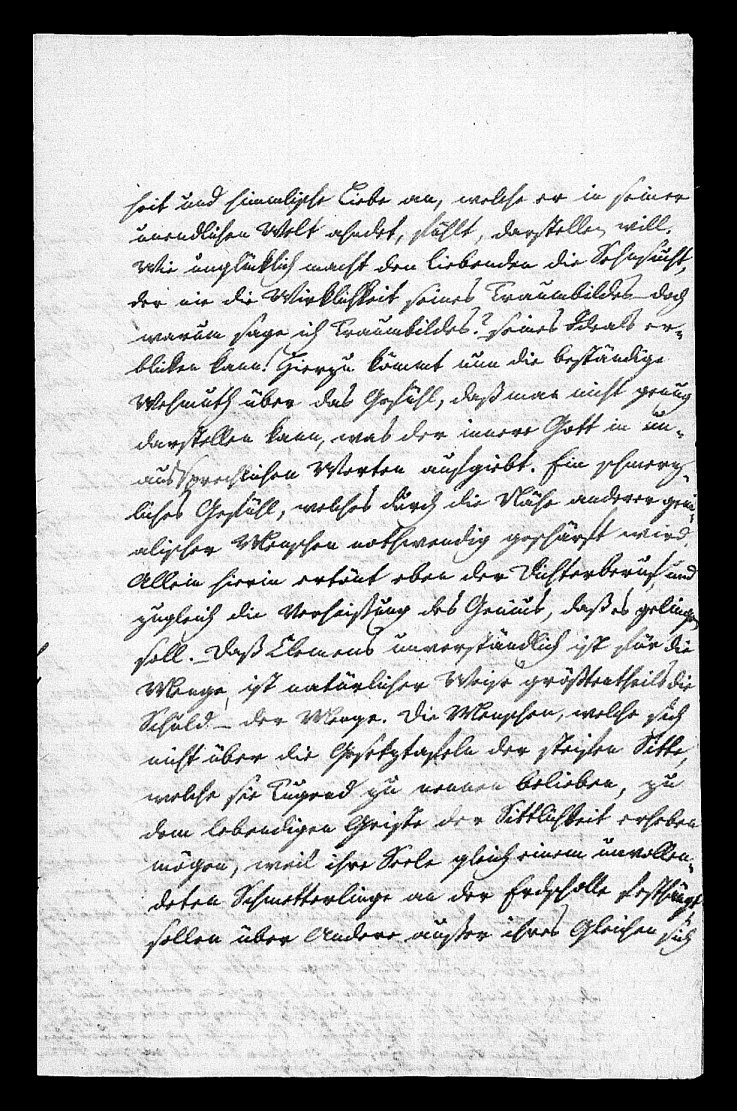 heit und himmlische Liebe an, welche er in seiner
unendlichen Welt ahndet, fühlt, darstellen will.
Wie unglücklich macht den Liebenden die Sehnsucht,
der nie die Wirklichkeit seines Traumbildes – doch
warum sage ich Traumbildes? – seines Ideals er-
blicken kann! Hierzu kömmt nun die beständige
Wehmuth über das Gefühl, daß man nicht genug
darstellen kann, was der innere Gott in un-
aussprechlichen Worten ausgiebt. Ein schmerz-
liches Gefühl, welches durch die Nähe anderer geni-
alischer Menschen nothwendig geschärft wird
Allein hierin ertönt eben der Dichterberuf, und
zugleich die Verheißung des Genius, daß es gelingen
soll. – Daß Clemens unverständlich ist für die
Menge, ist natürlicher Weise größtentheils die
Schuld – der Menge. Die Menschen, welche sich
nicht über die Gesetztafeln der steifen Sitte,
welche sie Tugend zu nennen belieben, zu
dem lebendigen Geiste der Sittlichkeit erheben
mögen, weil ihre Seele gleich einem unvollen-
deten Schmetterlinge an der Erdscholle festhängt
sollen über Andere außer ihres Gleichen sich